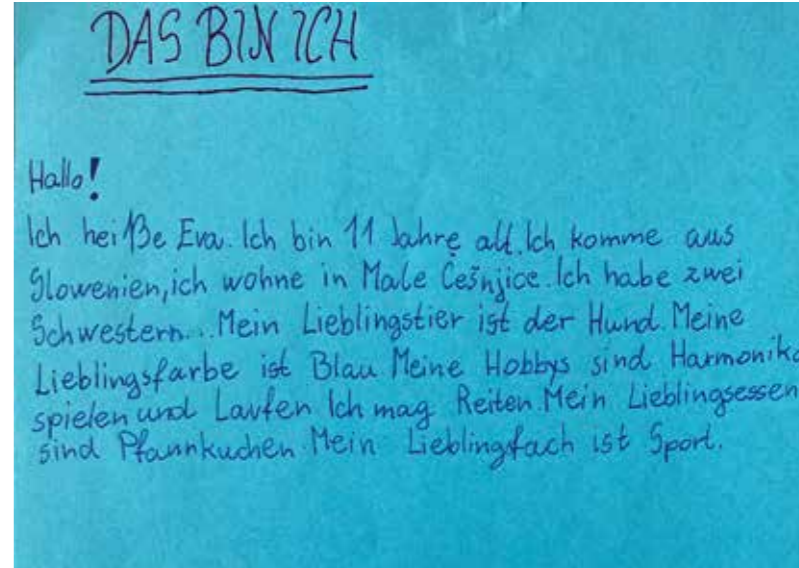 DAS BIN ICH
Hallo!
Ich heiße Eva. Ich bin 11 Jahre alt. Ich komme aus
Slowenien, ich wohne in Male Češnjice. Ich habe zwei
Schwestern. Mein Lieblingstier ist der Hund. Meine
Lieblingsfarbe ist Blau. Meine Hobbys sind Harmonika
spielen und Laufen. Ich mag Reiten. Mein Lieblingsessen
sind Pfannkuchen. Mein Lieblingfach ist Sport.